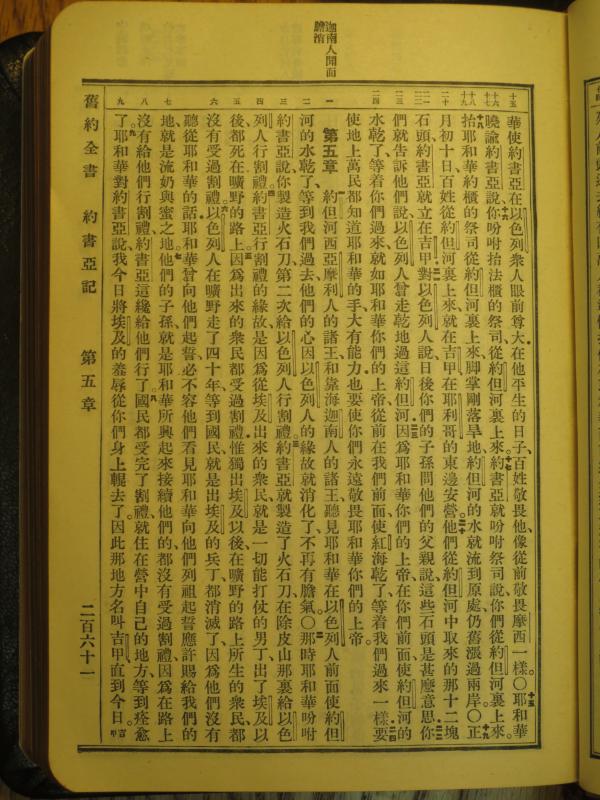 迦南人聞而
膽消
十五 華使約書亞在以色列衆人眼前尊大在他平生的日子百姓敬畏他像從前敬畏摩西一樣〇十五耶和華
十六 十七 曉諭約書亞說你吩咐抬法櫃的祭司從約但河裏上來十七約書亞就吩咐祭司說你們從約但河裏上來十八
十八 十九 抬耶和華約櫃的祭司從約但河裏上來脚掌剛落旱地約但河的水就流到原處仍舊漲過兩岸〇十九正
二十 月初十日百姓從約但河裏上來就在吉甲在耶利哥的東邊安營二十他們從約但河中取來的那十二塊
二一 二二 石頭約書亞就立在吉甲二一對以色列人說日後你們的子孫問他們的父親說這些石頭是甚麼意思二二你
二三 們就告訴他們說以色列人曾走乾地過這約但河二三因爲耶和華你們的上帝在你們前面使約但河的
二四 水乾了等着你們過來就如耶和華你們的上帝從前在我們前面使紅海乾了等着我們過來一樣二四要
使地上萬民都知道耶和華的手大有能力也要使你們永遠敬畏耶和華你們的上帝
一 第五章 一約但河西亞摩利人的諸王和靠海迦南人的諸王聽見耶和華在以色列人前面使約但
二 河的水乾了等到我們過去他們的心因以色列人的緣故就消化了不再有膽氣〇二那時耶和華吩咐
三 約書亞說你製造火石刀第二次給以色列人行割禮三約書亞就製造了火石刀在除皮山那裏給以色
四 列人行割禮四約書亞行割禮的緣故是因爲從埃及出來的衆民就是一切能打仗的男丁出了埃及以
五 後都死在曠野的路上五因爲出來的衆民都受過割禮惟獨出埃及以後在曠野的路上所生的衆民都
六 沒有受過割禮六以色列人在曠野走了四十年等到國民就是出埃及的兵丁都消滅了因爲他們沒有
聽從耶和華的話耶和華曾向他們起誓必不容他們看見耶和華向他們列祖起誓應許賜給我們的
七 地就是流奶與蜜之地七他們的子孫就是耶和華所興起來接續他們的都沒有受過割禮因爲在路上
八 沒有給他們行割禮約書亞這纔給他們行了八國民都受完了割禮就住在營中自己的地方等到痊愈
九 了九耶和華對約書亞說我今日將埃及的羞辱從你們身上輥去了因此那地方名叫吉甲直到今日
舊約全書 約書亞記 第五章 二百六十一